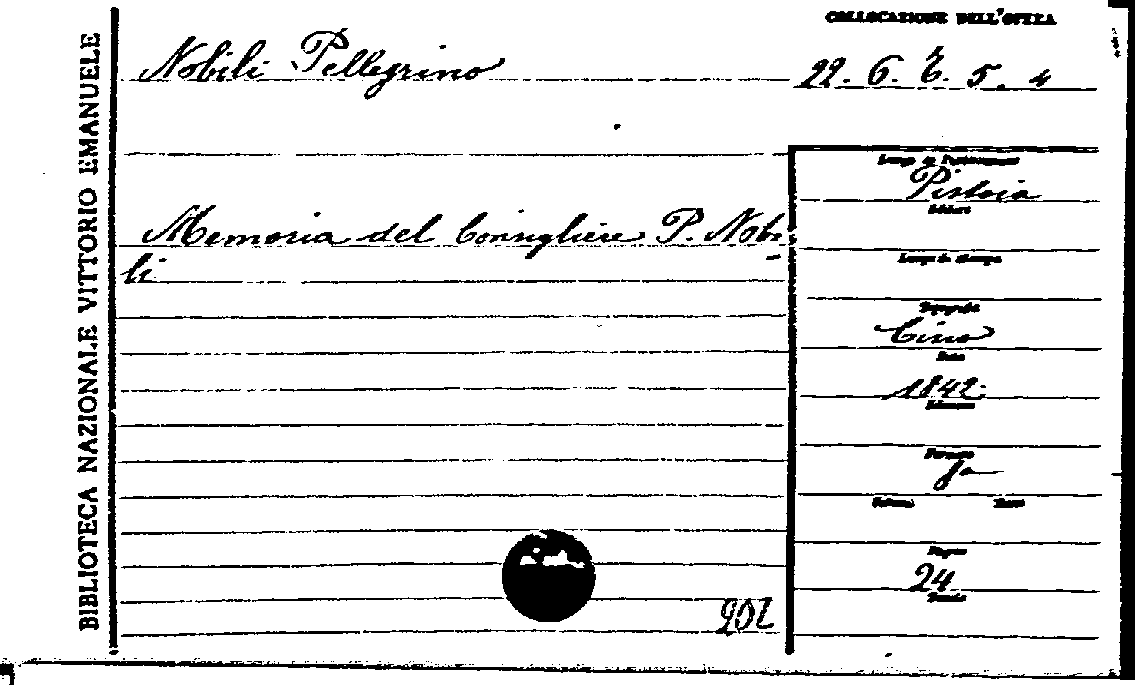 BIBLIOTECA NAZIONALE VITTORIO EMANUELE
COLLOCAZIONE DELL'OPERA
Nobili Pellegrino
22. 6. E. 5. 4
Luogo di Pubblicazione
Pistoia
Editore
Memoria del Consigliere P. Nobi-
li
Luogo di stampa
Tipografia
Cino
Data
1842
Edizione
Formato
fo
Volumi
Pagine
24
202